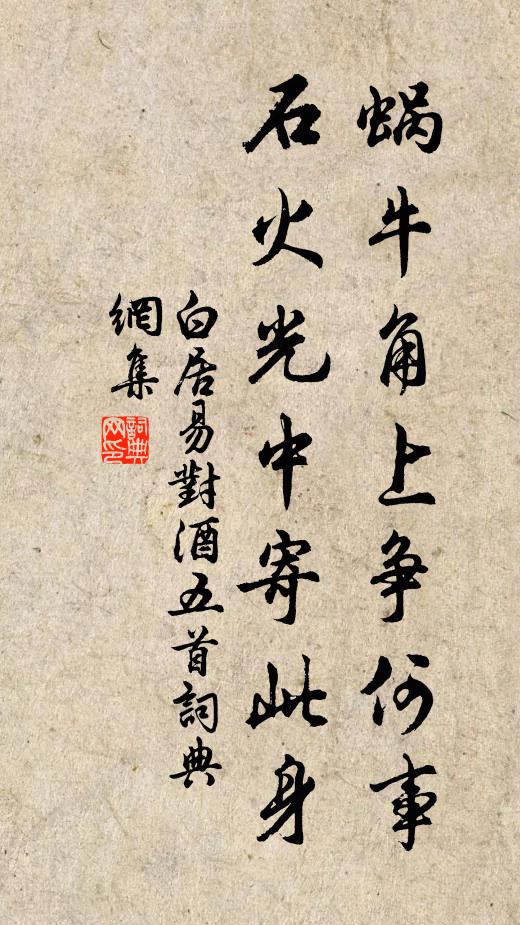 蜗牛角上争何事
石火光中寄此身
白居易對酒五首詞典
網集
詞典
网印